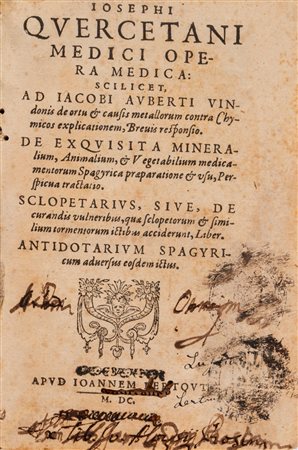 IOSEPHI
QVERCETANI
MEDICI OPE-
RA MEDICA:
SCILICET,
AD IACOBI AVBERTI VIN-
donis de ortu & causis metallorum contra Chy-
micos explicationem, Breuis responsio.
DE EXQVISITA MINERA-
lium, Animalium, & Vegetabilium medica-
mentorum Spagyrica præparatione & vsu, Per-
spicua tractatio.
SCLOPETARIVS, SIVE, DE
curandis vulneribus, quæ sclopetorum & simi-
lium tormentorum ictibus acciderunt, Liber.
ANTIDOTARIVM SPAGYRI-
cum aduersus eosdem ictus.
APVD IOANNEM
M. DC.